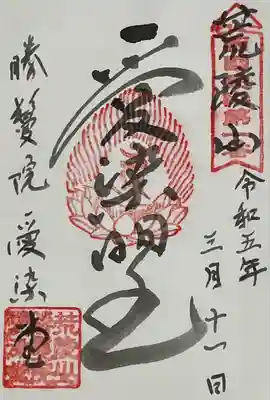 荒陵山
令和五年
三月十一日
愛染明王
勝鬘院愛染堂